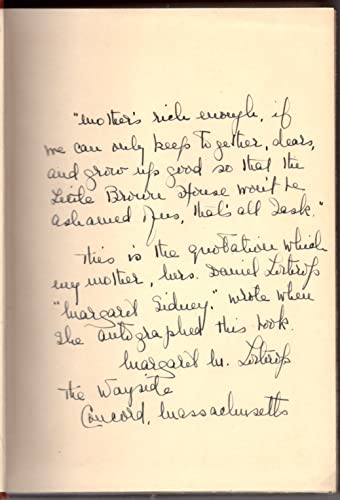 "Mother's rich enough, if
we can only keep together, dears,
and grow up good so that the
Little Brown House won't be
ashamed of us, that's all I ask."
This is the quotation which
my mother, Mrs. Daniel Lothrop
"Margaret Sidney" wrote when
she autographed this book.
Margaret M. Lothrop
The Wayside
Concord, Massachusetts